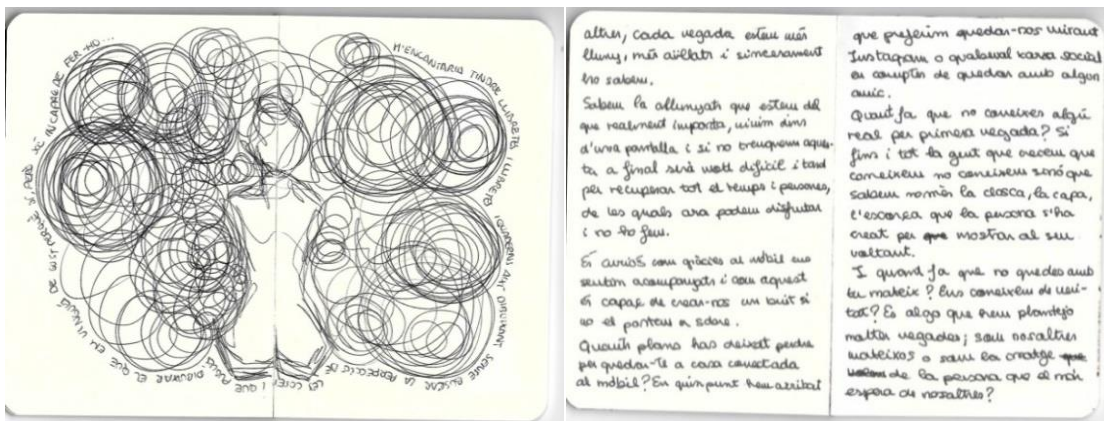 M'ENCANTARIA TINDRE LLIBRETES I LLIBRETES I QUADERNS DIBUIXANT SENSE BUSCAR LA PERFECCIÓ DE LES COSES I QUE PUGUI DIBUIXAR EL QUE EM VINGUÉS DE GUST PERQUÈ SÍ, PERÒ SÓC INCAPAÇ DE FER-HO...
altres, cada vegada estem més
lluny, més aïllats i sincerament
ho sabem.
Sabem la allunyats que estem del
que realment importa, vivim dins
d'una pantalla i si no trenquem aques-
ta, a final serà molt difícil i tard
per recuperar tot el temps i persones,
de les quals ara podem disfrutar
i no ho fem.
És curiós com gràcies al mòbil ens
sentim acompanyats i com aquest
és capaç de crear-nos un buit si
no el portem a sobre.
Quants plans has deixat perdre
per quedar-te a casa conectada
al mòbil? En quin punt hem arribat
que preferim quedar-nos mirant
Instagram o qualsevol xarxa social
en comptes de quedar amb algun
amic.
Quant fa que no coneixes algú
real per primera vegada? Si
fins i tot la gent que creiem que
coneixem no coneixem sinó que
sabem només la closca, la capa,
l'escorça que la persona s'ha
creat per mostrar al seu
voltant.
I quant fa que no quedes amb
tu mateix? Ens coneixem de veri-
tat? És algo que hem plantejo
moltes vegades; som nosaltres
mateixos o som la
de la persona que el món
espera de nosaltres?